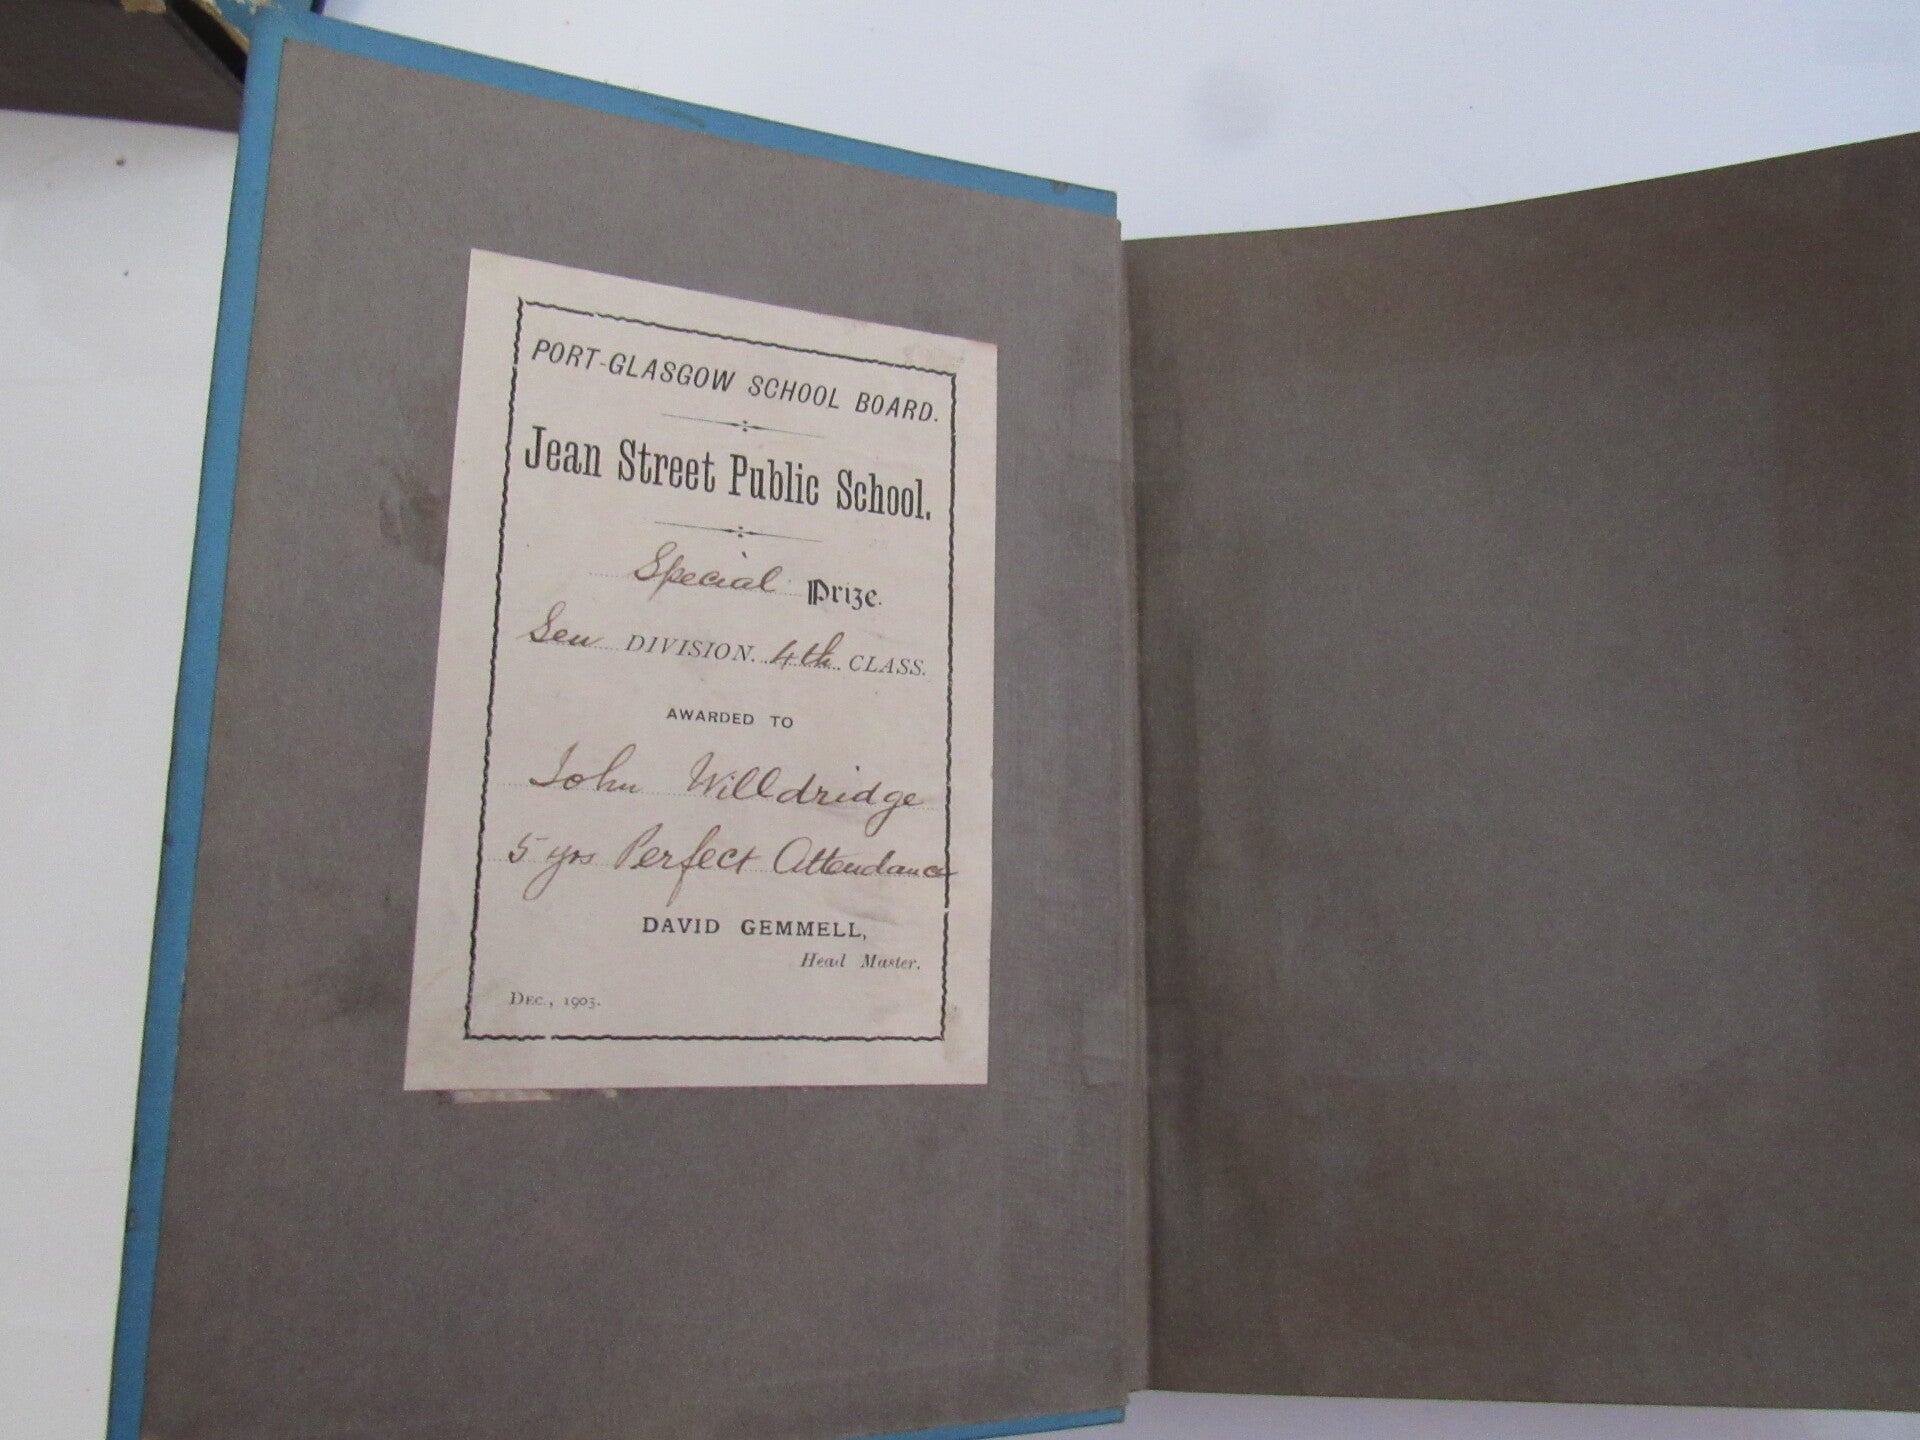 PORT-GLASGOW SCHOOL BOARD.
Jean Street Public School.
Special Prize.
Sen DIVISION. 4th CLASS.
AWARDED TO
John Willdridge
5 yrs Perfect Attendance
DAVID GEMMELL,
Head Master.
DEC., 1903.